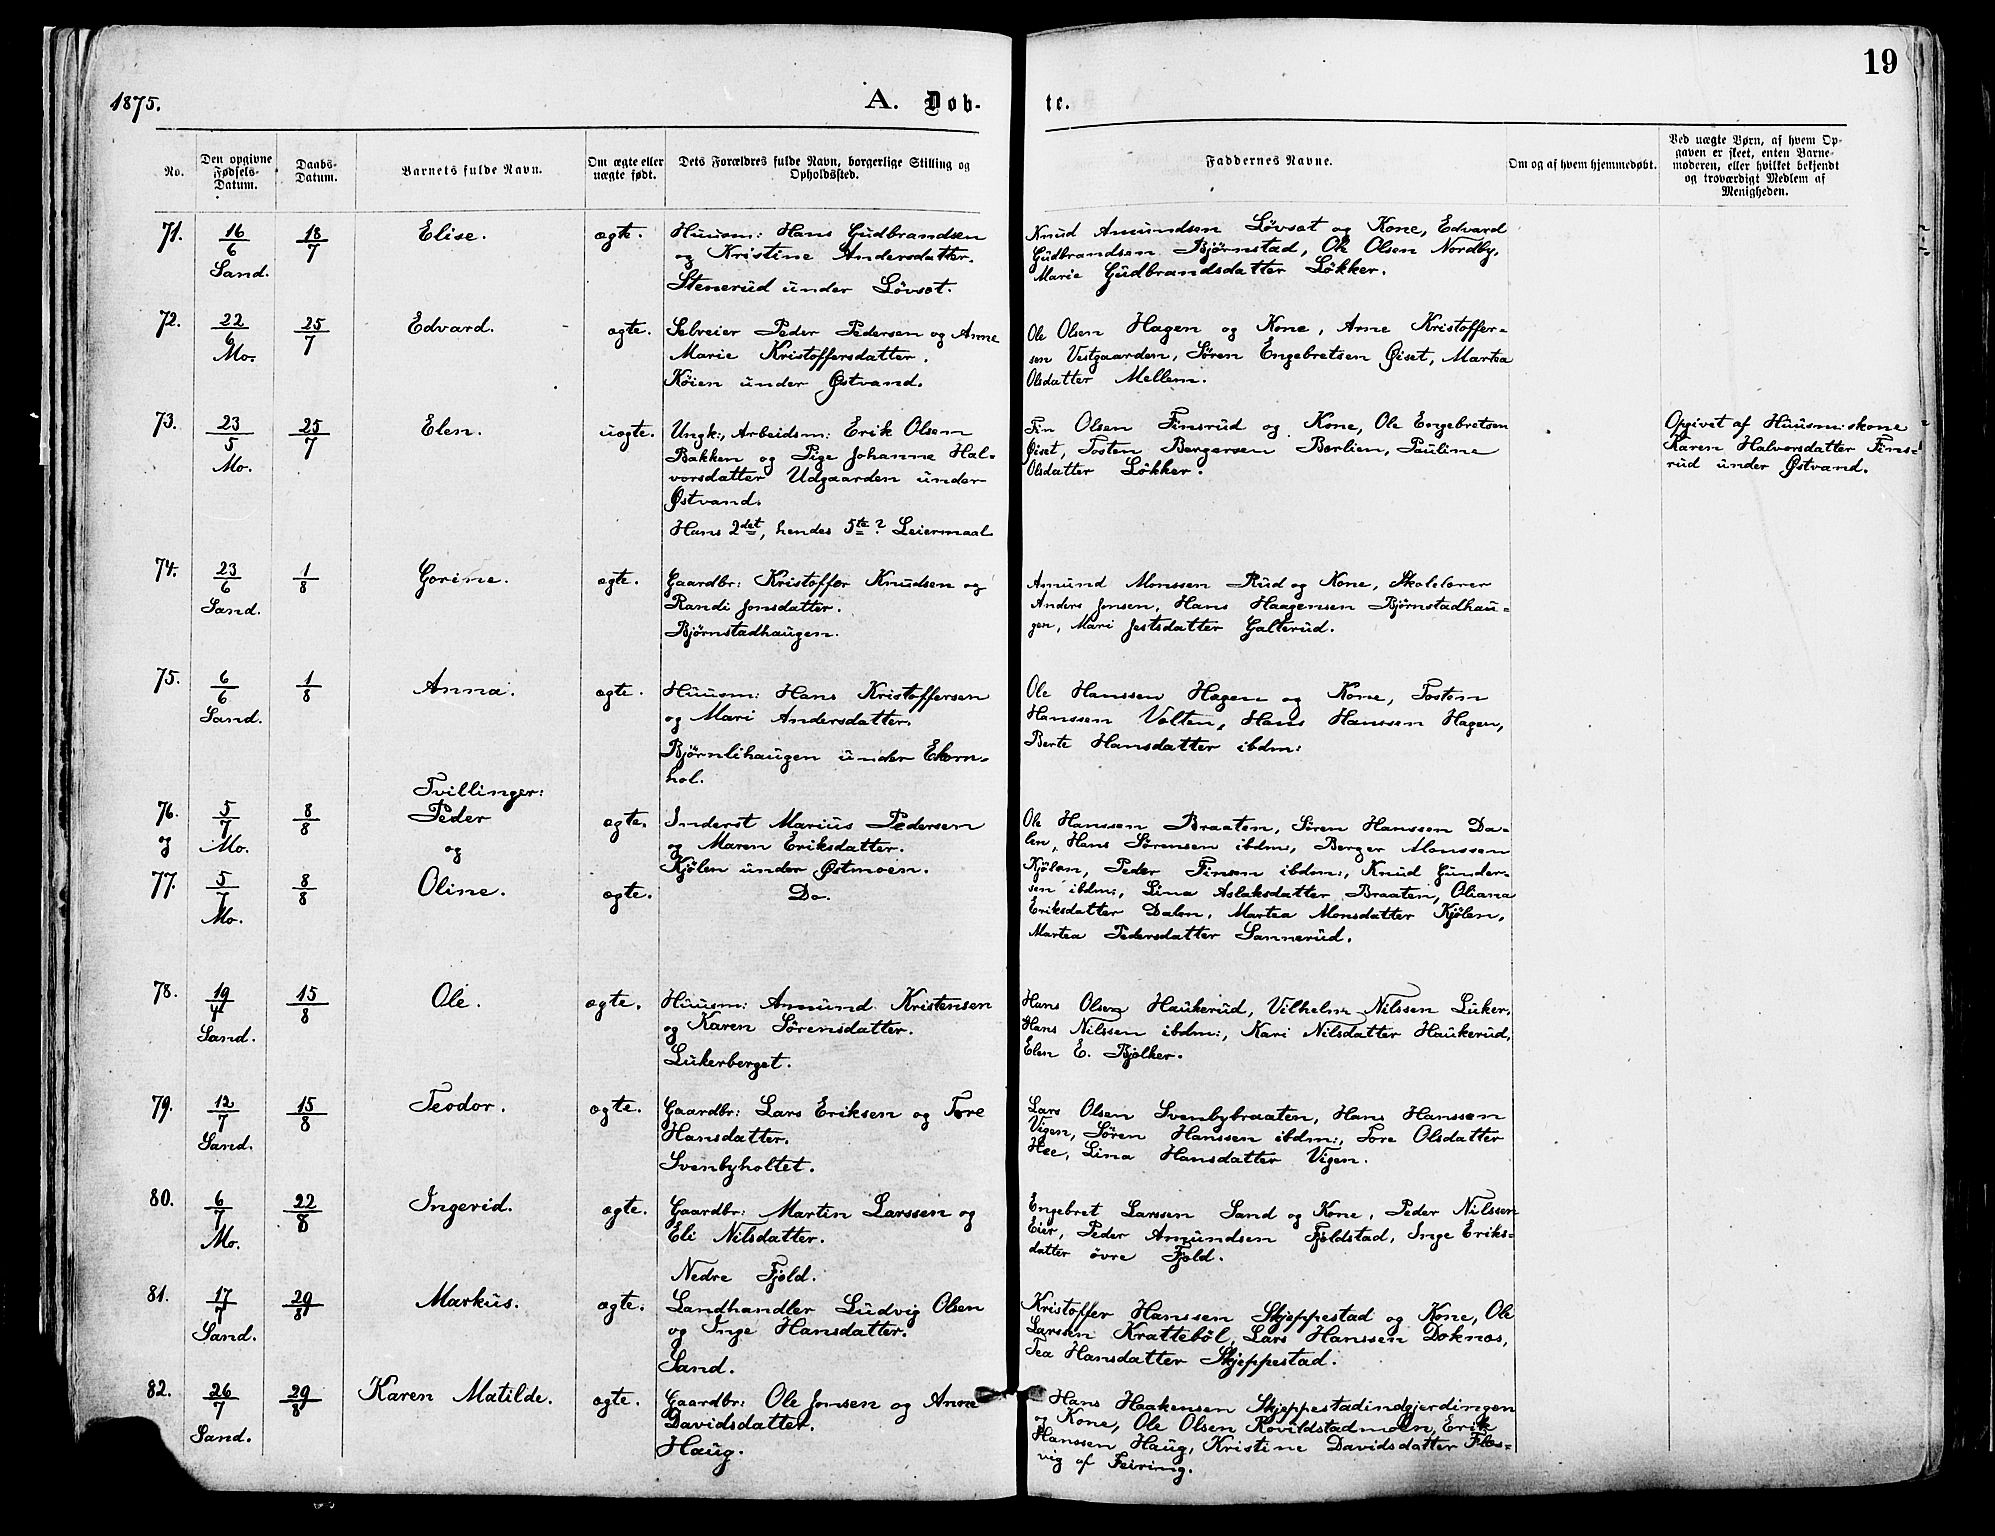 19
1875.
A. Døb-
te.
No.
Den opgivne
Fødsels-
Datum.
Daabs-
Datum.
Barnets fulde Navn.
Om ægte eller
uægte født.
Dets Forældres fulde Navn, borgerlige Stilling og
Opholdssted.
Faddernes Navne.
Om og af hvem hjemmedøbt.
Ved uægte Børn, af hvem Op-
gaven er skeet, enten Barne-
moderen, eller hvilket bekjendt
og troværdigt Medlem af
Menigheden.
71.
16/6
Sand.
18/7
Elise.
ægte.
Huusm: Hans Gudbrandsen
og Kristine Andersdatter.
Stenerud under Løvsæt.
Knud Amundsen Løvsæt og Kone, Edvard
Gudbrandsen Bjørnstad, Ole Olsen Nordby,
Marie Gudbrandsdatter Løkker.
72.
22/6
Mo.
25/7
Edvard.
ægte.
Selveier Peder Pedersen og Anne
Marie Kristoffersdatter.
Køien under Østvand.
Ole Olsen Hagen og Kone, Arne Kristoffer-
sen Vestgaarden, Søren Engebretsen Øiset, Martea
Olsdatter Mellem.
73.
23/5
Mo.
25/7
Elen.
uægte.
Ungk:, Arbeidsm: Erik Olsen
Bakken og Pige Johanne Hal-
vorsdatter Udgaarden under
Østvand.
Hans 2det, hendes 5te? Leiermaal
Fin Olsen Finsrud og Kone, Ole Engebretsen
Øiset, Tosten Bergersen Berlien, Pauline
Olsdatter Løkker.
Opgivet af Huusm:skone
Karen Halvorsdatter Fins-
rud under Østvand.
74.
23/6
Sand.
1/8
Gorine.
ægte.
Gaardbr: Kristoffer Knudsen og
Randi Jonsdatter.
Bjørnstadhaugen.
Amund Monssen Rud og Kone, Skolelærer
Anders Jonsen, Hans Haagensen Bjørnstadhau-
gen, Mari Jestsdatter Galterud.
75.
6/6
Sand.
1/8
Anna.
ægte.
Huusm: Hans Kristoffersen
og Mari Andersdatter.
Bjørnlihaugen under Ekorn-
hol.
Ole Hanssen Hagen og Kone, Tosten
Hanssen Volten, Hans Hanssen Hagen,
Berte Hansdatter ibdm:
Tvillinger:
76.
5/7
Mo.
8/8
Peder
ægte.
Inderst Marius Pedersen
og Maren Eriksdatter.
Kjølen under Østmoen.
og
og
77.
5/7
Mo.
8/8
Oline.
ægte.
Do.
Ole Hanssen Braaten, Søren Hanssen Da-
len, Hans Sørensen ibdm:, Berger Monssen
Kjølen, Peder Finsen ibdm:, Knud Gunder-
sen ibdm:, Lina Aslaksdatter Braaten, Oliana
Eriksdatter Dalen, Martea Monsdatter Kjølen,
Martea Pedersdatter Sannerud.
78.
Sand.
15/8
Ole.
ægte.
Huusm: Amund Kristensen
og Karen Sørensdatter.
Lukerberget.
Hans Olsen Haukerud, Vilhelm Nilssen Luker,
Hans Nilssen ibdm:, Kari Nilsdatter Haukerud,
Elen E. Bjølker.
79.
12/7
Sand.
15/8
Teodor.
ægte.
Gaardbr: Lars Eriksen og Tore
Hansdatter.
Svenbyholtet.
Lars Olsen Svenbybraaten, Hans Hanssen
Vigen, Søren Hanssen ibdm:, Tore Olsdatter
Hee, Lina Hansdatter Vigen.
80.
6/7
Mo.
22/8
Ingerid.
ægte.
Gaardbr: Martin Larssen og
Eli Nilsdatter.
Nedre Fjeld.
Engebret Larssen Sand og Kone, Peder Nilssen
Eier, Peder Amundsen Fjeldstad, Inge Eriks-
datter øvre Fjeld.
81.
17/7
Sand.
29/8
Markus.
ægte.
Landhandler Ludvig Olsen
og Inge Hansdatter.
Sand.
Kristoffer Hanssen Skjeppestad og Kone, Ole
Larssen Krattebøl, Lars Hanssen Doknæs,
Tea Hansdatter Skjeppestad.
82.
26/7
Sand.
29/8
Karen Matilde.
ægte.
Gaardbr: Ole Jonsen og Anne
Davidsdatter.
Haug.
Hans Haakensen Skjeppestadindgjerdingen
og Kone, Ole Olsen Rovildstadmoen, Erik
Hanssen Haug, Kristine Davidsdatter Flæs-
vig af Feiring.